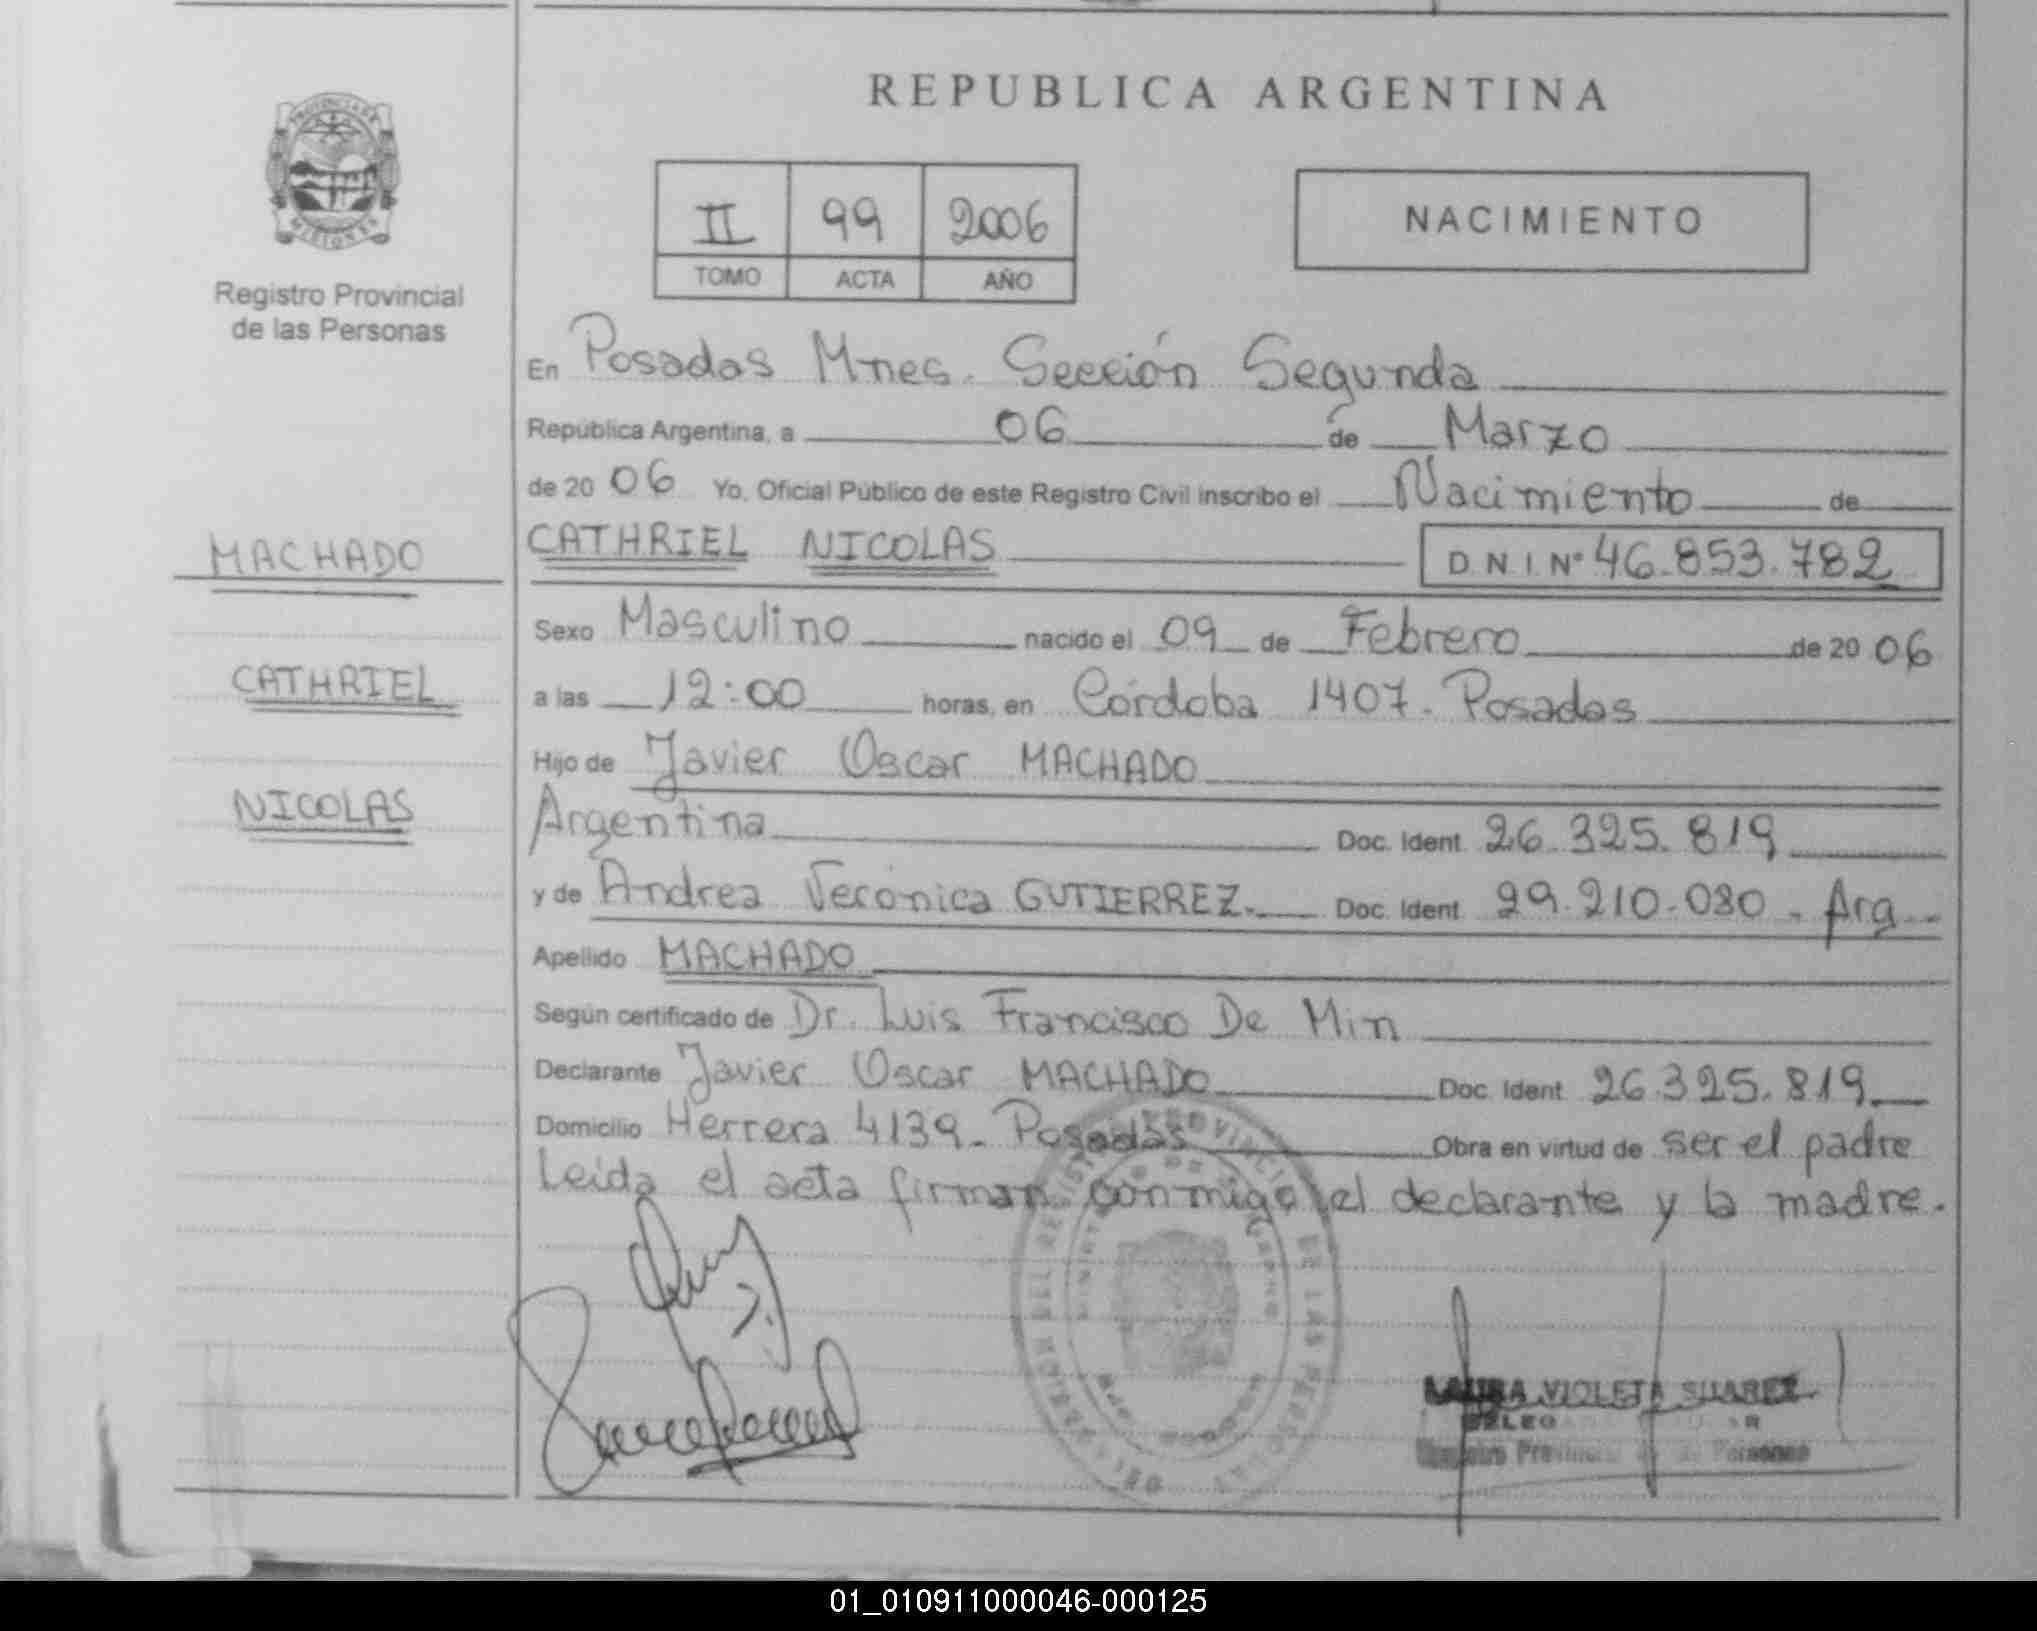 REPUBLICA ARGENTINA
PROVINCIA DE
MISIONES
Registro Provincial
de las Personas
II 99 2006
TOMO ACTA AÑO
NACIMIENTO
En Posadas Mnes. Sección Segunda
República Argentina, a 06 de Marzo
de 20 06 Yo, Oficial Público de este Registro Civil inscribo el Nacimiento de
MACHADO
CATHRIEL NICOLAS D.N.I. Nº 46.853.782
Sexo Masculino nacido el 09 de Febrero de 20 06
CATHRIEL
a las 12:00 horas, en Córdoba 1407. Posadas
Hijo de Javier Oscar MACHADO
NICOLAS
Argentina Doc. Ident. 26.325.819
y de Andrea Verónica GUTIERREZ. Doc. Ident. 29.210.080 - Arg
Apellido MACHADO
Según certificado de Dr. Luis Francisco De Min
Declarante Javier Oscar MACHADO Doc. Ident. 26.325.819
Domicilio Herrera 4139. Posadas Obra en virtud de ser el padre
Leida el acta firman conmigo el declarante y la madre.
LAURA VIOLETA SUAREZ
Registro Provincial de las Personas
01_010911000046-000125